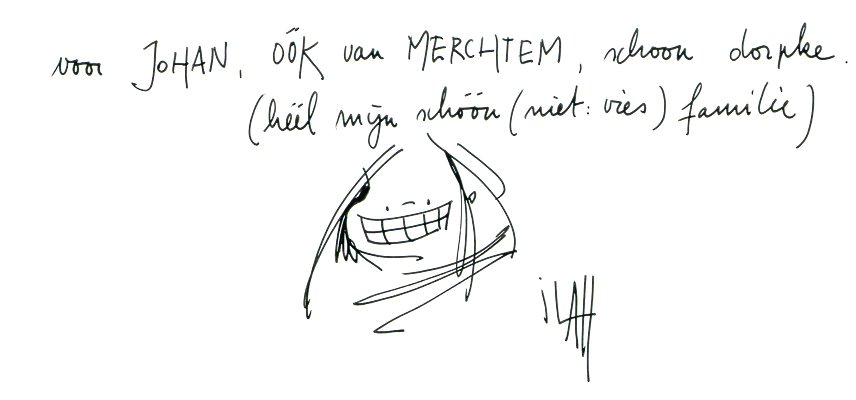 voor JOHAN, ÓÓK van MERCHTEM, schoon dorpke.
(héél mijn schöön (niet: vies) familie)
iLAH